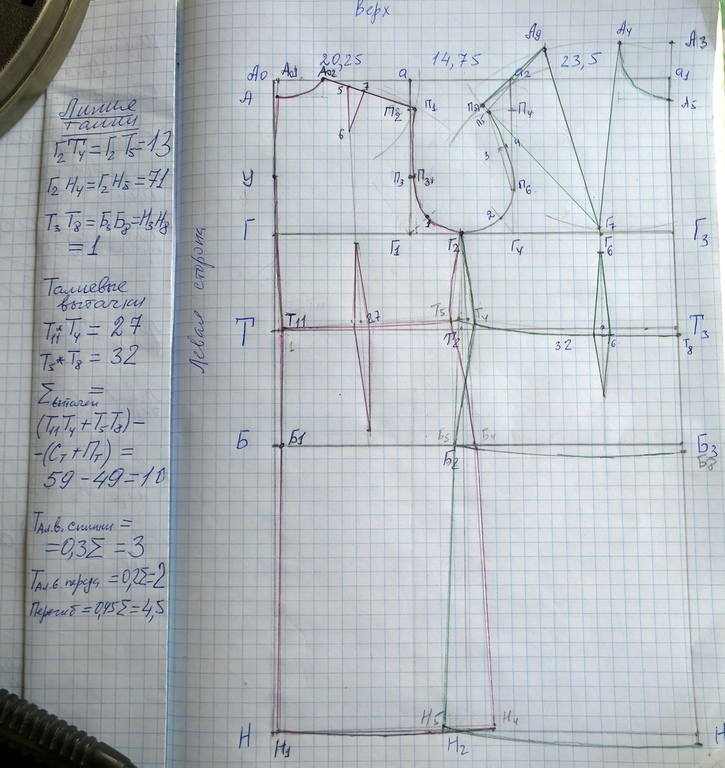 Верх
Линие
талии
Г₂Т₄ = Г₂Т₅ = 13
Г₂Н₄ = Г₂Н₅ = 71
Т₃Т₈ = Б₃Б₈ = Н₃Н₈
= 1
Талиевые
вытачки
Т₁₁*Т₄ = 27
Т₅*Т₈ = 32
Σвытачек =
(Т₁₁Т₄ + Т₅Т₈) -
-(Ст + Пт) =
59 - 49 = 10
Тал.в. спинки =
= 0,3Σ = 3
Тал.в. переда = 0,2Σ = 2
Перегиб = 0,45Σ = 4,5
Левая сторона
А₉ А₄ А₃
20,25 14,75 23,5
А₀ А₀₁ А₀₂ а а₂ а₁
А 5 7 П₂ П₁ П₄ А₅
6 3 4
У П₃ П₃₁ П₆
1 2 Г₇
Г Г₁ Г₂ Г₄ Г₆ Г₃
Т Т₁₁ 27 Т₅ Т₄ Т₃
1 Т₂ 32 6 Т₈
Б Б₁ Б₅ Б₄ Б₃
Б₂ Б₈
Н₅ Н₄
Н Н₁ Н₂ Н